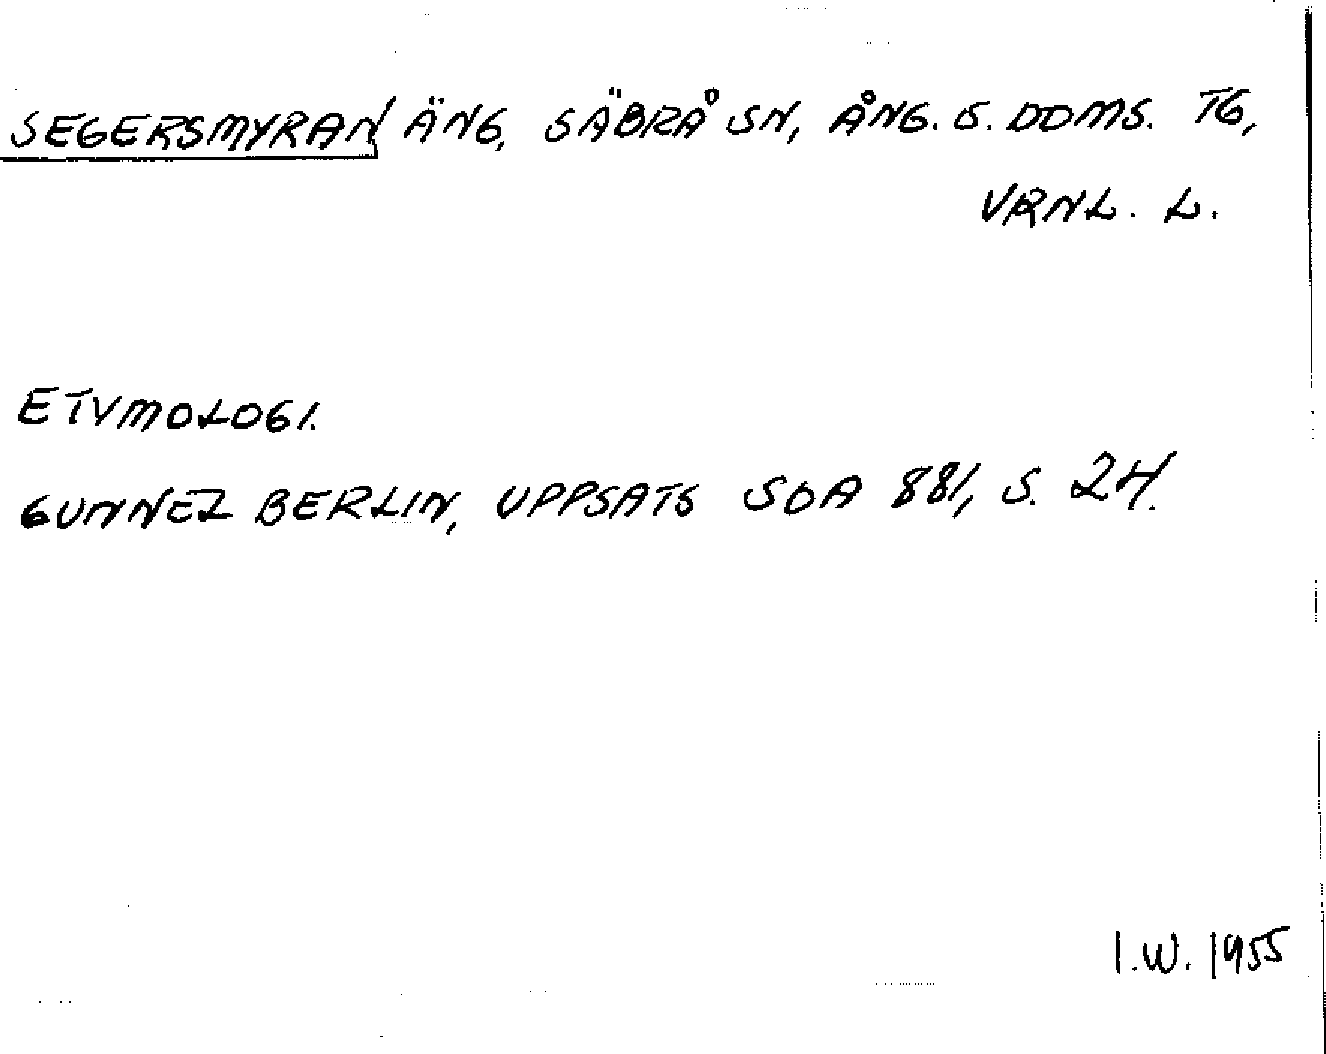 SEGERSMYRAN ÄNG, SÄBRÅ SN, ÅNG. S. DOMS. TG,
VRNL. L.
ETYMOLOGI.
GUNNEL BERLIN, UPPSATS SOA 881, S. 24.
I.W. 1955